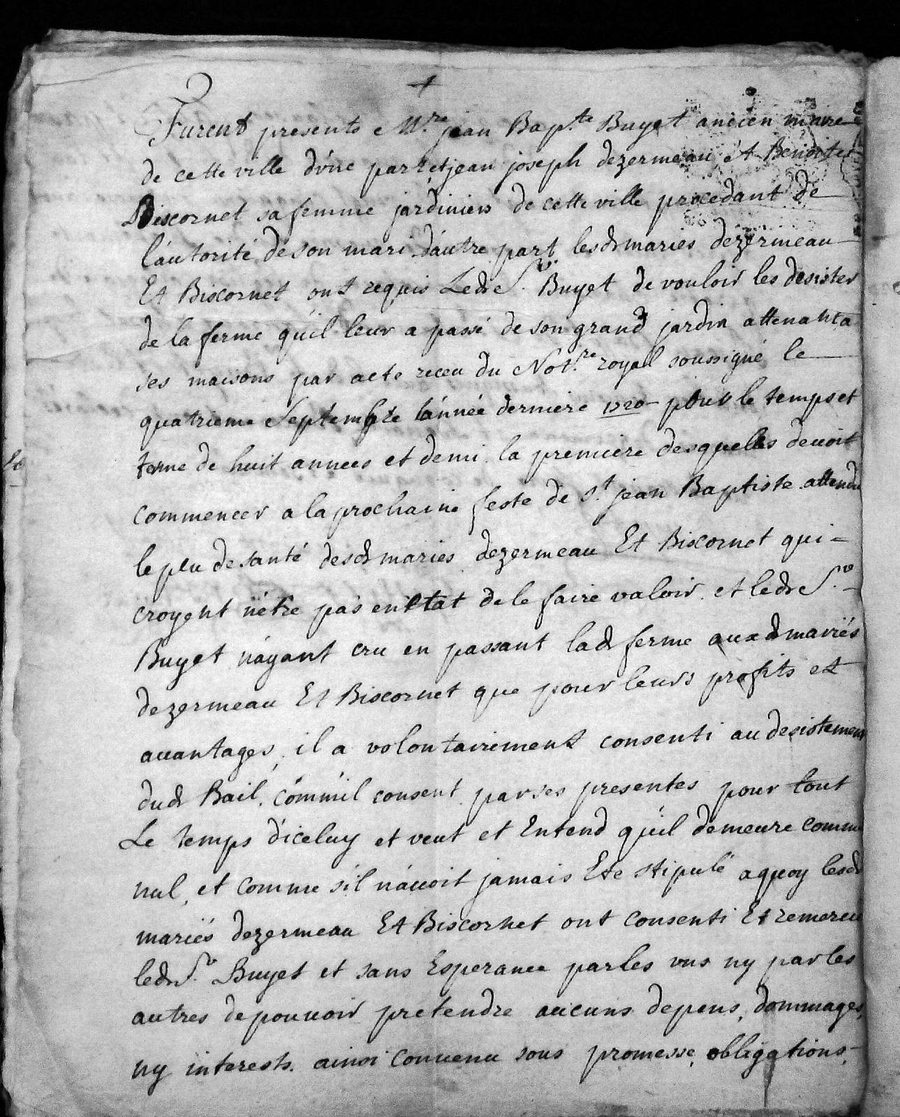 +
Furent presents e Mre jean Bapte Buyet ancien maire
de cette ville d'une part et jean joseph dezermeau Et Benoite
Biscornet sa femme jardiniers de cette ville procedant de
l'autorité de son mari d'autre part, lesd maries dezermeau
Et Biscornet ont requis Ledt Sr Buyet de vouloir les desister
de la ferme qu'il leur a passé de son grand jardin attenant a
ses maisons par acte receu du Notre royal soussigné le
quatrieme Septembre l'année derniere 1720 pour le temps et
terme de huit annees et demi. la premiere desquelles devoit
commencer a la prochaine feste de St jean Baptiste. attendu
le peu de santé desd maries dezermeau Et Biscornet qui
croyent n'étre pas en Etat de le faire valoir. et ledt Sr
Buyet n'ayant cru en passant lad ferme auxd mariés
dezermeau Et Biscornet que pour leurs profits et
avantages, il a volontairement consenti au desistement
dud Bail, comm'il consent par ses presentes pour tout
Le temps d'iceluy et veut et Entend qu'il demeure comme
nul, et comme s'il n'avoit jamais Eté stipulé a quoy lesd
mariés dezermeau Et Biscornet ont consenti Et remercié
ledt Sr Buyet et sans Esperance par les uns ny par les
autres de pouvoir pretendre aucuns depens, dommages,
ny interests. ainsi convenu sous promesse, obligations